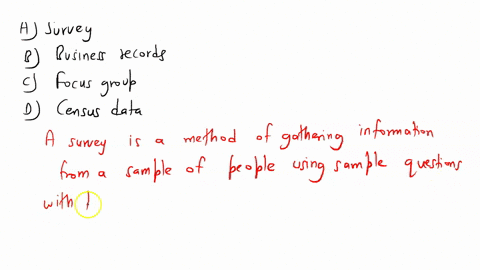 A) Survey
B) Business records
C) Focus group
D) Census data
A survey is a method of gathering information
from a sample of people using sample questions
with